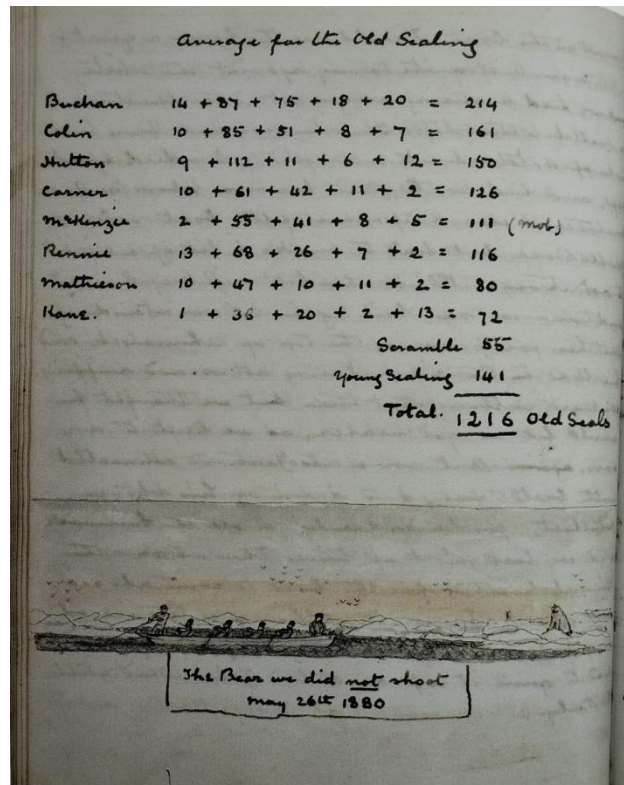 Average for the Old Sealing
Buchan 14 + 87 + 75 + 18 + 20 = 214
Colin 10 + 85 + 51 + 8 + 7 = 161
Hutton 9 + 112 + 11 + 6 + 12 = 150
Carner 10 + 61 + 42 + 11 + 2 = 126
McKenzie 2 + 55 + 41 + 8 + 5 = 111 (mob)
Rennie 13 + 68 + 26 + 7 + 2 = 116
Mathieson 10 + 47 + 10 + 11 + 2 = 80
Kane. 1 + 36 + 20 + 2 + 13 = 72
Scramble 55
Young Sealing 141
Total. 1216 Old Seals
The Bear we did not shoot
May 26th 1880